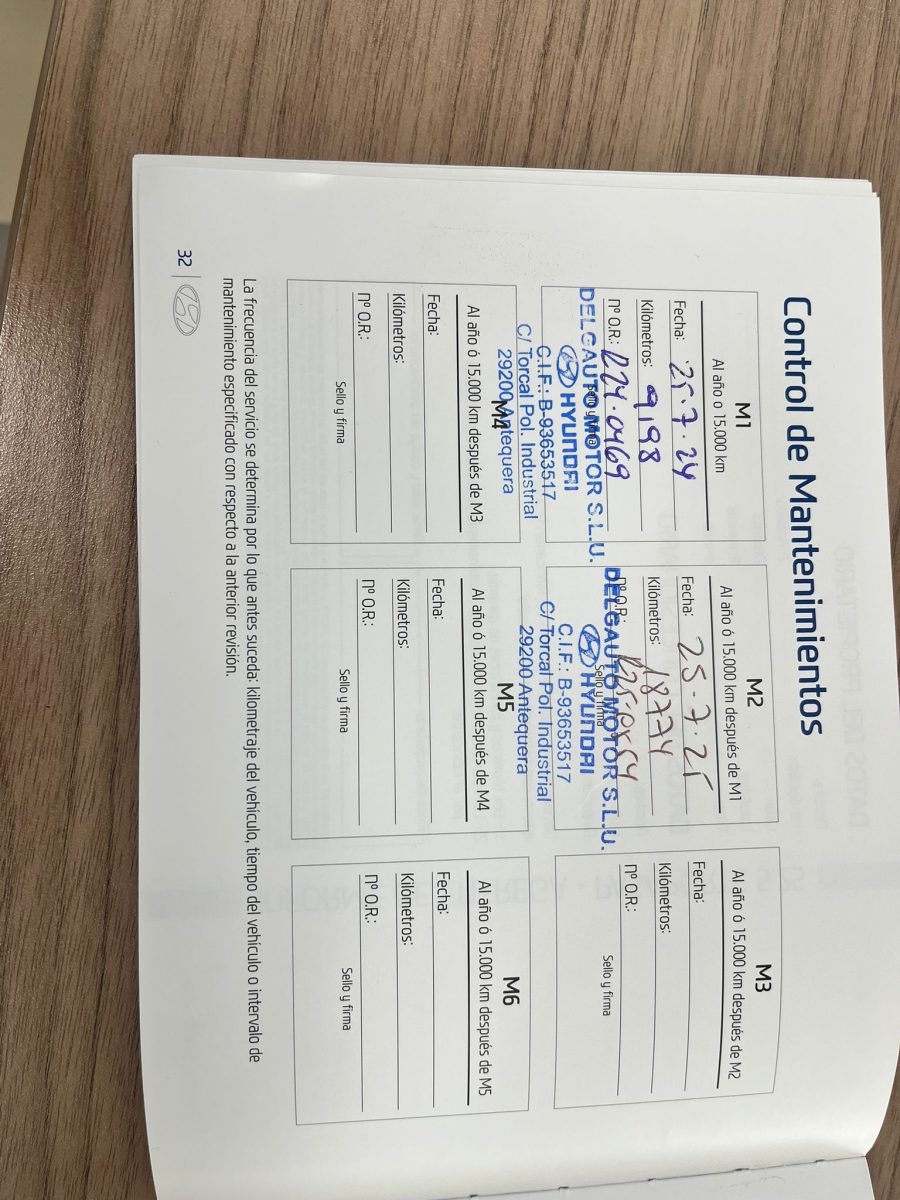 Control de Mantenimientos
M1
Al año o 15.000 km
Fecha: 25.7.24
Kilómetros: 9198
nº O.R.: R24.0469
Sello y firma
DELGAUTO MOTOR S.L.U.
HYUNDAI
C.I.F.: B-93653517
C/ Torcal Pol. Industrial
29200 Antequera
M2
Al año ó 15.000 km después de M1
Fecha: 25.7.25
Kilómetros: 18774
nº O.R.:
Sello y firma
DELGAUTO MOTOR S.L.U.
HYUNDAI
C.I.F.: B-93653517
C/ Torcal Pol. Industrial
29200 Antequera
M3
Al año ó 15.000 km después de M2
Fecha:
Kilómetros:
nº O.R.:
Sello y firma
M4
Al año ó 15.000 km después de M3
Fecha:
Kilómetros:
nº O.R.:
Sello y firma
M5
Al año ó 15.000 km después de M4
Fecha:
Kilómetros:
nº O.R.:
Sello y firma
M6
Al año ó 15.000 km después de M5
Fecha:
Kilómetros:
nº O.R.:
Sello y firma
La frecuencia del servicio se determina por lo que antes suceda: kilometraje del vehículo, tiempo del vehículo o intervalo de
mantenimiento especificado con respecto a la anterior revisión.
32